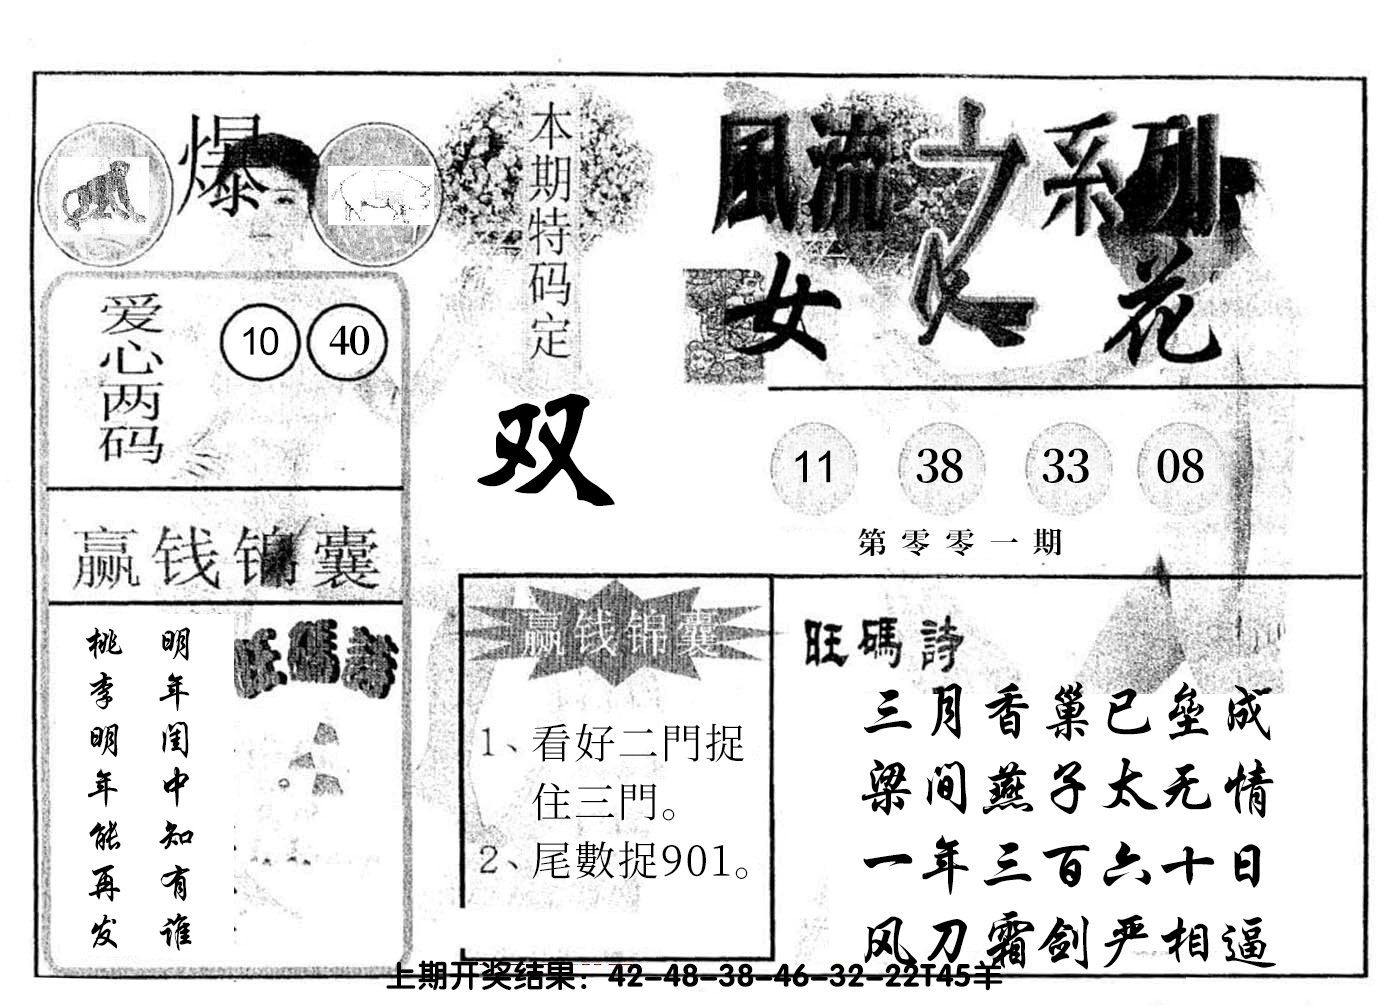 爆
本期特码定
双
風流之系列
女人花
爱心两码
10 40
11 38 33 08
第零零一期
赢钱锦囊
桃李明年能再发
明年闺中知有谁
旺碼詩
赢钱锦囊
1、看好二門捉
住三門。
2、尾數捉901。
旺碼詩
三月香巢已垒成
梁间燕子太无情
一年三百六十日
风刀霜剑严相逼
上期开奖结果：42-48-38-46-32-22T45羊